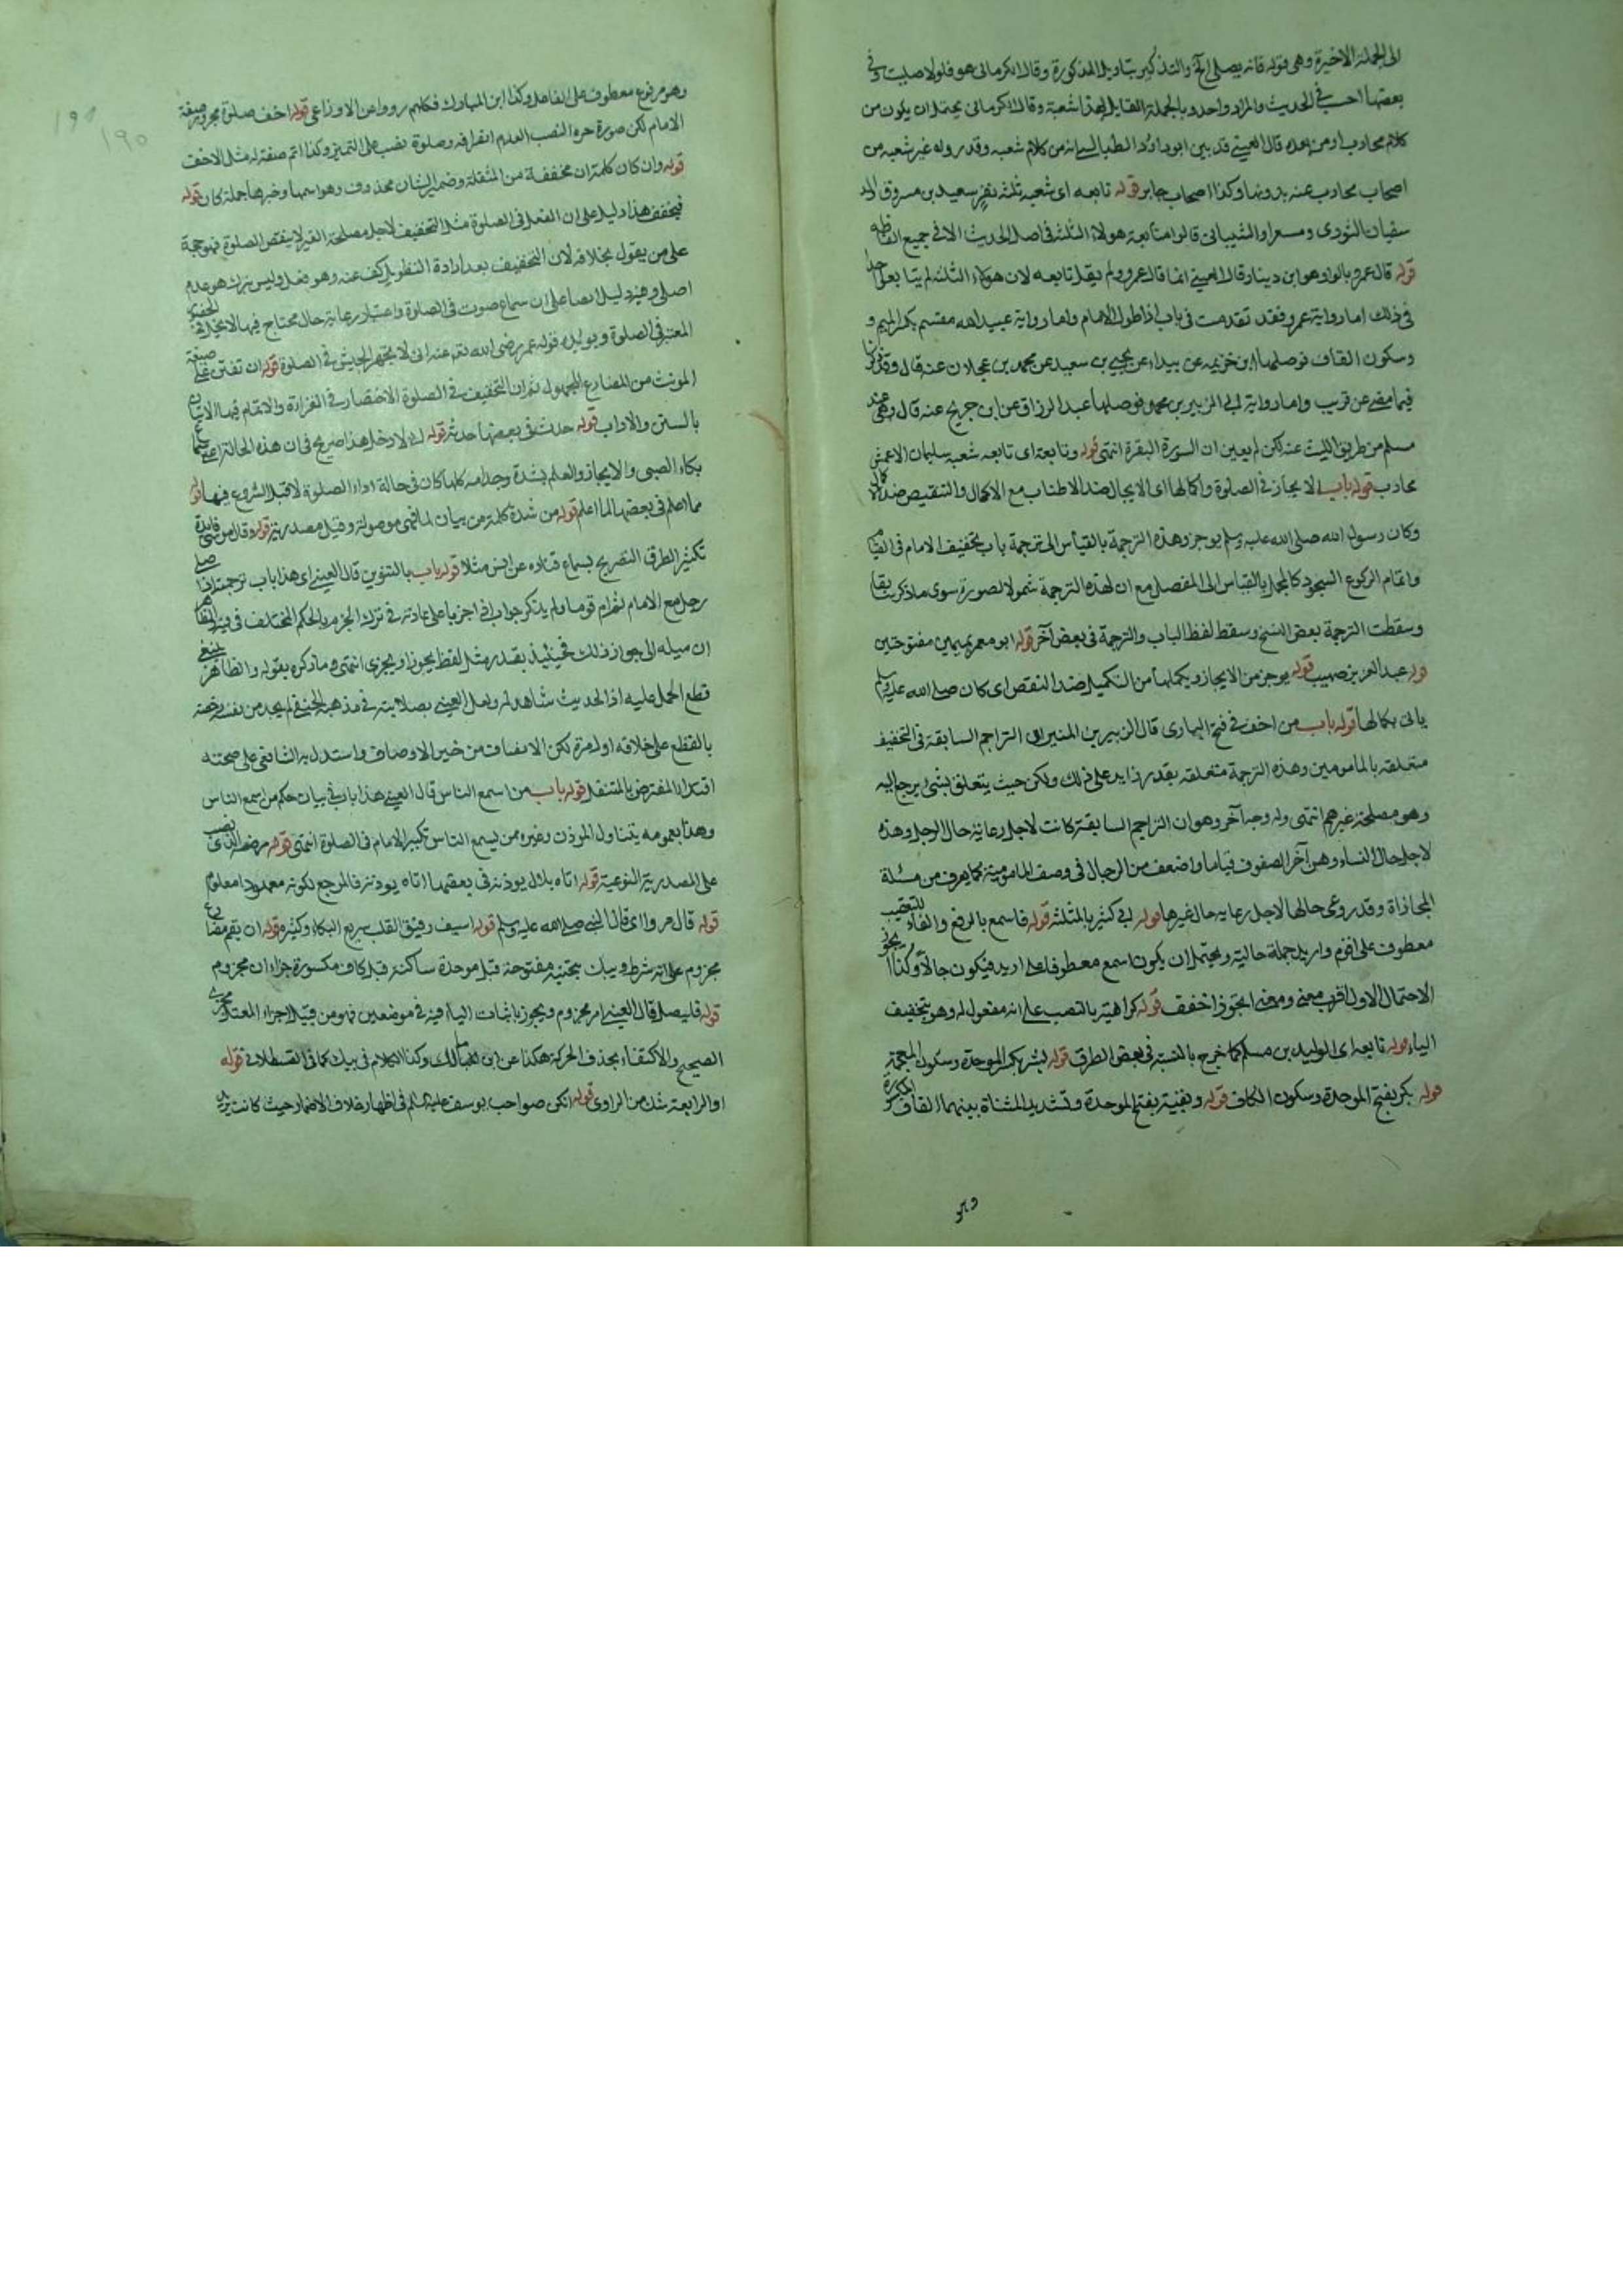 الى الجملة الاخيرة وهى قوله فانه يصلى الخ والتذكير بتاويل المذكورة وقال الكرمانى هو فلولا صليت وفى
بعضها احسب فى الحديث والمراد واحد وبالجملة القايل لهذا شعبة وقال الكرمانى يحتمل ان يكون من
كلام محارب او من بعده قال العينى قد بين ابو داود الطيالسى انه من كلام شعبه وقد رواه غير شعبه من
اصحاب محارب عنه بدونها وكذا اصحاب جابر قوله تابعه اى شعبه ثلثه نفر سعيد بن مسروق والد
سفيان الثورى ومسعر والشيبانى قالوا متابعة هولاء الثلثة فى اصل الحديث لا فى جميع الفاظه
قوله قال عمرو بالواو هو ابن دينار وقال العينى انما قال عمرو ولم يقل تابعه لان هولاء الثلثه لم يتابعوا احدا
فى ذلك اما رواية عمرو فقد تقدمت فى باب اذا طول الامام واما رواية عبيد الله مقسم بكسر الميم و
وسكون القاف فوصلها ابن خزيمه عن بندار عن يحيى بن سعيد عن محمد بن عجلان عنه قال وقد ذكرنا
فيما مضى عن قريب واما رواية ابى الزبير بن محمد فوصلها عبد الرزاق عن ابن جريج عنه قال وهى عند
مسلم من طريق الليث عنه لكن لم يعين ان السورة البقرة انتهى قوله وتابعه اى تابعه شعبه سليمان الاعمش
محارب قوله باب الايجاز فى الصلوة واكمالها اى الايجاز ضد الاطناب مع الاكمال والتنقيص ضد الاكمال
وكان رسول الله صلى الله عليه وسلم يوجز وهذه الترجمة بالقياس الى ترجمة باب تخفيف الامام فى القيام
واتمام الركوع السجود كالمجمل بالقياس الى المفصل مع ان لهذه الترجمة شمولا لصورة سوى ما ذكر سابقا
وسقطت الترجمة بعض النسخ وسقط لفظ الباب والترجمة فى بعض آخر قوله ابو معمر بميمين مفتوحتين
قوله عبد العزيز بن صهيب قوله يوجز من الايجاز ويكملها من التكميل ضد النقص اى كان صلى الله عليه وسلم
ياتى بكمالها قوله باب من اخف فى فتح البارى قال الزبير بن المنير ان التراجم السابقة فى التخفيف
متعلقه بالمامومين وهذه الترجمة متعلقه بقدر زايد على ذلك ولكن حيث يتعلق بشئ يرجع اليه
وهو مصلحة غيرهم انتهى وله وجه آخر وهو ان التراجم السابقة كانت لاجل رعاية حال الرجل وهذه
لاجل حال النساء وهن آخر الصفوف قياما واضعف من الرجال فى وصف المامومية كما يعرف من مسئلة
المحاذاة وقد روعى حالها لاجل رعايه حال غيرها قوله ابى كثير بالمثلثه قوله فاسمع بالرفع والفاء للتعقيب
معطوف على اقوم واريد جملة حالية ويحتمل ان يكون اسمع معطوفا على اريد فيكون حالا وكذا اتجوز
الاحتمال الاول اقرب معنى ومعنى اتجوز اخفف قوله كراهية بالنصب على انه مفعول له وهو بتخفيف
الياء قوله تابعه اى الوليد بن مسلم كما خرج بالنسبة فى بعض الطرق قوله بشر بكسر الموحدة وسكون المعجمة
قوله بكر بفتح الموحدة وسكون الكاف قوله وبقية بفتح الموحدة وتشديد المثناة بينهما القاف المكسورة
وهو
١٩٠
وهو مرفوع معطوف على الفاعل وكذا ابن المبارك فكلهم رووا عن الاوزاعى قوله اخف صلوة مجرور صفة
الامام لكن صورة جره النصب لعدم انصرافه وصلوة نصب على التميز وكذا اتم صفة له مثل الاخف
قوله وان كان كلمة ان مخففة من المثقلة وضمير الشان محذوف وهو اسمها وخبرها جملة كان قوله
فيخفف هذا دليل على ان الفعل فى الصلوة مثل التخفيف لاجل مصلحة الغير لا ينقص الصلوة فهو حجة
على من يقول بخلافه لان التخفيف بعد ارادة التطويل كف عنه وهو فعل وليس بترك هو عدم
اصلى وفيه دليل ايضا على ان سماع صوت فى الصلوة واعتبار رعاية حال محتاج فيها لا يخل بالحضور
المعتبر فى الصلوة ويويده قوله عمر رضى الله تعالى عنه انى لاجهز الجيش فى الصلوة قوله ان تفتن على صيغة
المونث من المضارع المجهول ثم ان التخفيف فى الصلوة الاختصار فى القراءة والاتمام فيها الاتيان
بالسنن والاداب قوله حدث فى بعضها حدثه قوله انى لادخل هذا صريح فى ان هذه الحالة اعنى سماع
بكاء الصبى والايجاز والعلم بشدة وجد امه كلها كان فى حالة اداء الصلوة لا قبل الشروع فيها قوله
مما اعلم فى بعضها لما اعلم قوله من شدة كلمة من بيان لما فهى موصولة وقيل مصدرية قوله وقال موسى فايدة
تكثير الطرق التصريح بسماع قتاده عن انس مثلا قوله باب بالتنوين قال العينى اى هذا باب ترجمته اذا صلى
رجل مع الامام ثم ام قوما ولم يذكر جواب اذا جريا على عادته فى ترك الجزم بالحكم المختلف فيه والظاهر
ان ميله الى جواز ذلك فحينئذ يقدر مثل لفظ يجوز او يجزى انتهى وما ذكره بقوله والظاهر ينبغى
قطع الحمل عليه اذ الحديث شاهد له ولعل العينى بصلابته فى مذهبه الحنفى لم يجد من نفسه رخصة
بالقطع على خلافه اول مرة لكن الانصاف من خير الاوصاف واستدل به الشافعى على صحته
اقتداء المفترض بالمتنفل قوله باب من اسمع الناس قال العينى هذا باب فى بيان حكم من اسمع الناس
وهذا بعمومه يتناول الموذن وغيره ممن يسمع الناس تكبير الامام فى الصلوة انتهى قوله مرضه الذى نصب
على المصدرية النوعية قوله اتاه بلال يوذنه فى بعضها اتاه يوذنه فالمرجع لكونه معهودا معلوم
قوله قال مروا اى قال النبى صلى الله عليه وسلم قوله اسيف رقيق القلب سريع البكاء وكثيره قوله ان يقم مقامى
مجزوم على انه شرط ويبك بتحتية مفتوحة قبل موحدة ساكنة قبل كاف مكسورة جزاء ان مجزوم
قوله فليصل قال العينى امر مجزوم ويجوز باثبات الياء فيه فى موضعين فهو من قبيل اجراء المعتل مجرى
الصحيح والاكتفاء بحذف الحركة هكذا عن ابن مالك وكذا الكلام فى يبك كما فى القسطلانى قوله
او الرابعة شك من الراوى قوله انكن صواحب يوسف عليه السلم فى اظهار خلاف الاضمار حيث كانت